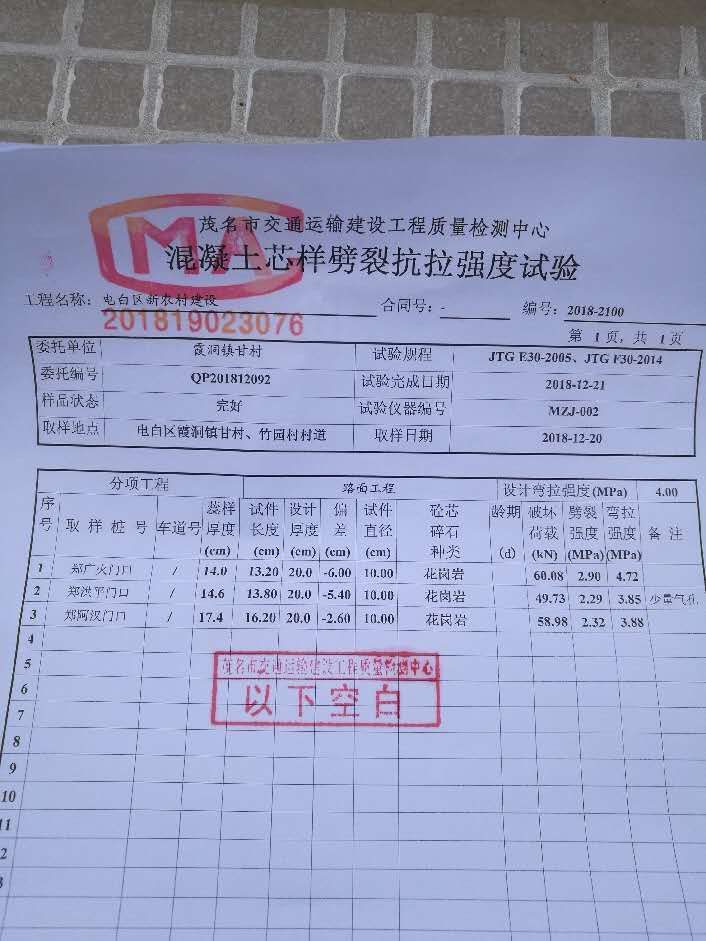 茂名市交通运输建设工程质量检测中心
MA
混凝土芯样劈裂抗拉强度试验
工程名称: 电白区新农村建设 合同号: - 编号: 2018-2100
201819023076
第 1页, 共 1页
委托单位 霞洞镇甘村 试验规程 JTG E30-2005、JTG F30-2014
委托编号 QP201812092 试验完成日期 2018-12-21
样品状态 完好 试验仪器编号 MZJ-002
取样地点 电白区霞洞镇甘村、竹园村村道 取样日期 2018-12-20
分项工程 路面工程 设计弯拉强度(MPa) 4.00
序号 取样桩号 车道号 蕊样厚度(cm) 试件长度(cm) 设计厚度(cm) 偏差(cm) 试件直径(cm) 砼芯碎石种类 龄期(d) 破坏荷载(kN) 劈裂强度(MPa) 弯拉强度(MPa) 备注
1 郑广火门口 / 14.0 13.20 20.0 -6.00 10.00 花岗岩 60.08 2.90 4.72
2 郑洪平门口 / 14.6 13.80 20.0 -5.40 10.00 花岗岩 49.73 2.29 3.85 少量气孔
3 郑阿汉门口 / 17.4 16.20 20.0 -2.60 10.00 花岗岩 58.98 2.32 3.88
4
5
茂名市交通运输建设工程质量检测中心
6
以下空白
7
8
9
10
11
2
3